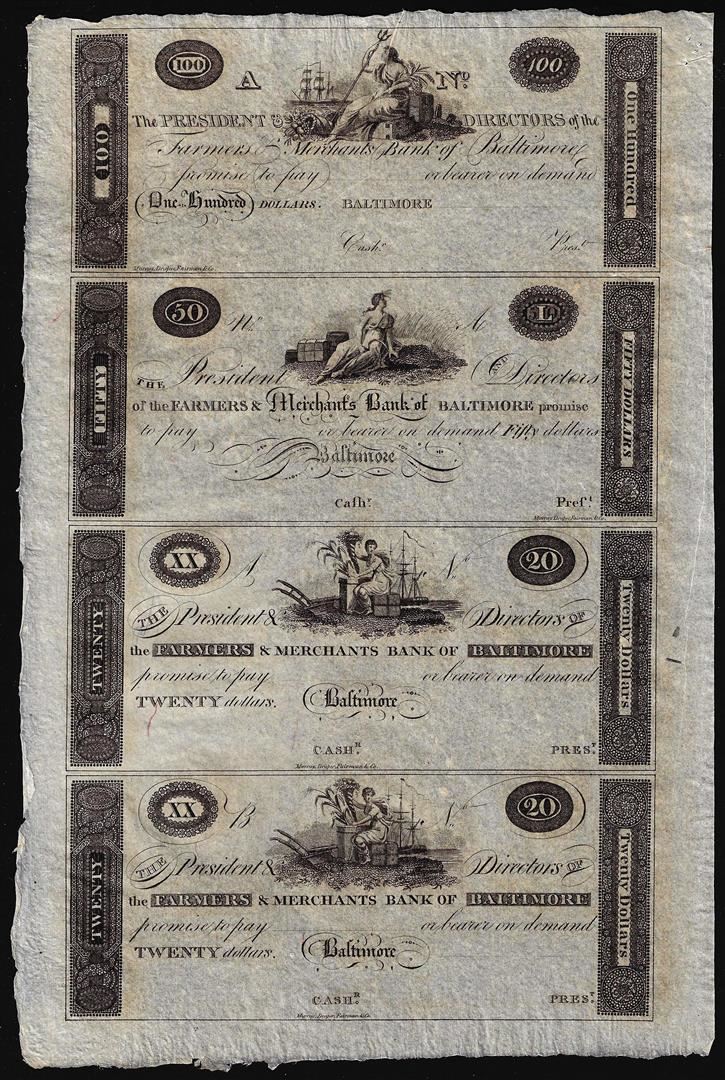 100 A Nº 100
The PRESIDENT & DIRECTORS of the
Farmers & Merchants Bank of Baltimore
promise to pay or bearer on demand
One Hundred DOLLARS. BALTIMORE
Cashr. Prest.
Murray, Draper, Fairman & Co.
100
One Hundred
50 Nº A 50
THE President AND Directors
of the FARMERS & Merchants Bank of BALTIMORE promise
to pay or bearer on demand Fifty dollars
Baltimore
Cashr. Prest.
Murray, Draper, Fairman & Co.
FIFTY
FIFTY DOLLARS
XX A Nº 20
THE President & Directors OF
the FARMERS & MERCHANTS BANK OF BALTIMORE
promise to pay or bearer on demand
TWENTY dollars. Baltimore
CASHR. PREST.
Murray, Draper, Fairman & Co.
TWENTY
Twenty Dollars
XX B Nº 20
THE President & Directors OF
the FARMERS & MERCHANTS BANK OF BALTIMORE
promise to pay or bearer on demand
TWENTY dollars. Baltimore
CASHR. PREST.
Murray, Draper, Fairman & Co.
TWENTY
Twenty Dollars